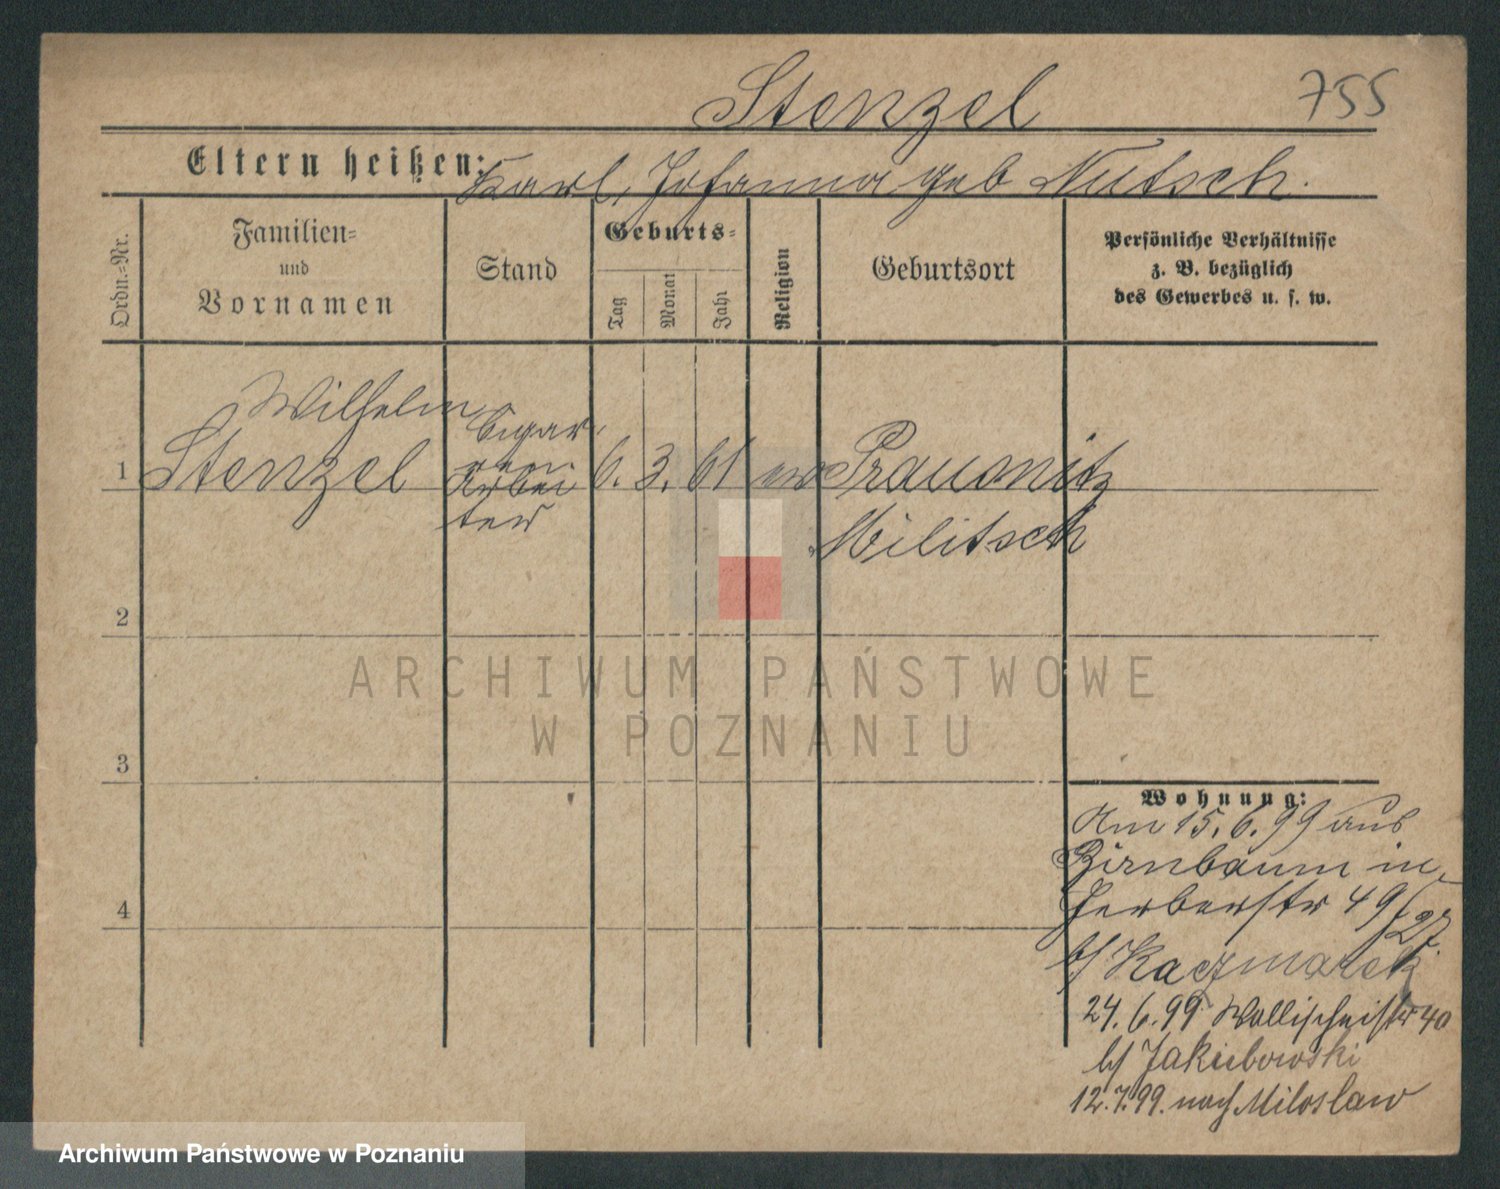 Stenzel 755
Eltern heißen: Karl, Johanna geb Nutsch.
Ordn.=Nr.
Familien=
und
Vornamen
Stand
Geburts=
Tag
Monat
Jahr
Religion
Geburtsort
Persönliche Verhältnisse
z. B. bezüglich
des Gewerbes u. s. w.
1
Wilhelm
Stenzel
Cigar
ren
Arbei
ter
6. 3. 61 ev
Militsch
2
3
4
Wohnung:
Am 15. 6. 99 aus
Birnbaum in
Gerberstr 49/27.
b/ Kaczmarek
24. 6. 99 Wallischeistr 40
b/ Jakubowski
12. 7. 99. nach Miloslaw
ARCHIWUM PAŃSTWOWE
W POZNANIU
Archiwum Państwowe w Poznaniu